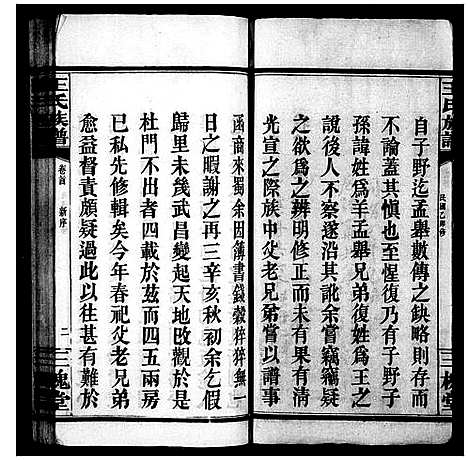 王氏族譜
民國乙卯修
三槐堂
自子野迄孟舉數傳之缺略則存而
不論蓋其慎也至惺復乃有子野子
孫諱姓為羊孟舉兄弟復姓為王之
說後人不察遂沿其訛余嘗竊竊疑
之欲為之辨明修正而未有果有清
光宣之際族中父老兄弟嘗以譜事
函商來蜀余因簿書錢穀猝猝無一
日之暇謝之再三辛亥秋初余乞假
歸里未幾武昌變起天地改觀於是
杜門不出者四載於茲而四五兩房
已私先修輯矣今年春祀父老兄弟
愈益督責顧疑過此以往甚有難於
王氏族譜
卷首
新序
二
三槐堂